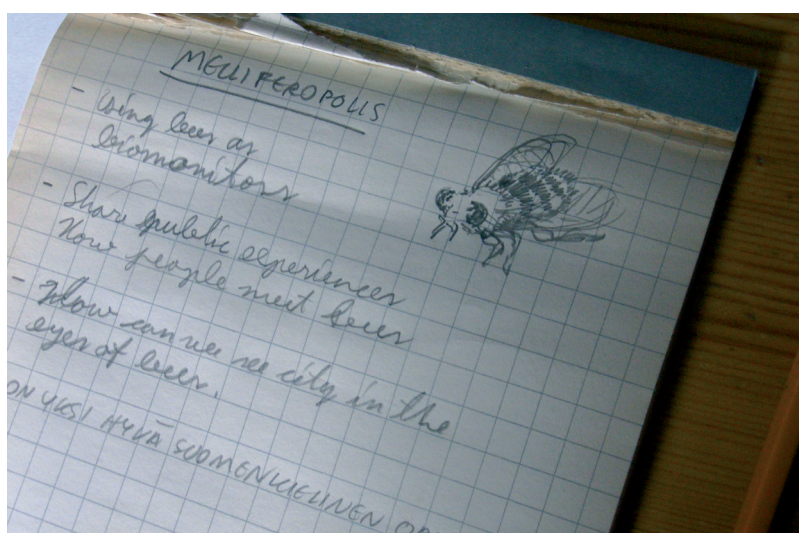 MELLIFEROPOLIS
- Using bees as
biomonitors
- Share public experiences
How people meet bees
- How can we see city in the
eyes of bees.
ON YKSI HYVÄ SUOMENKIELINEN